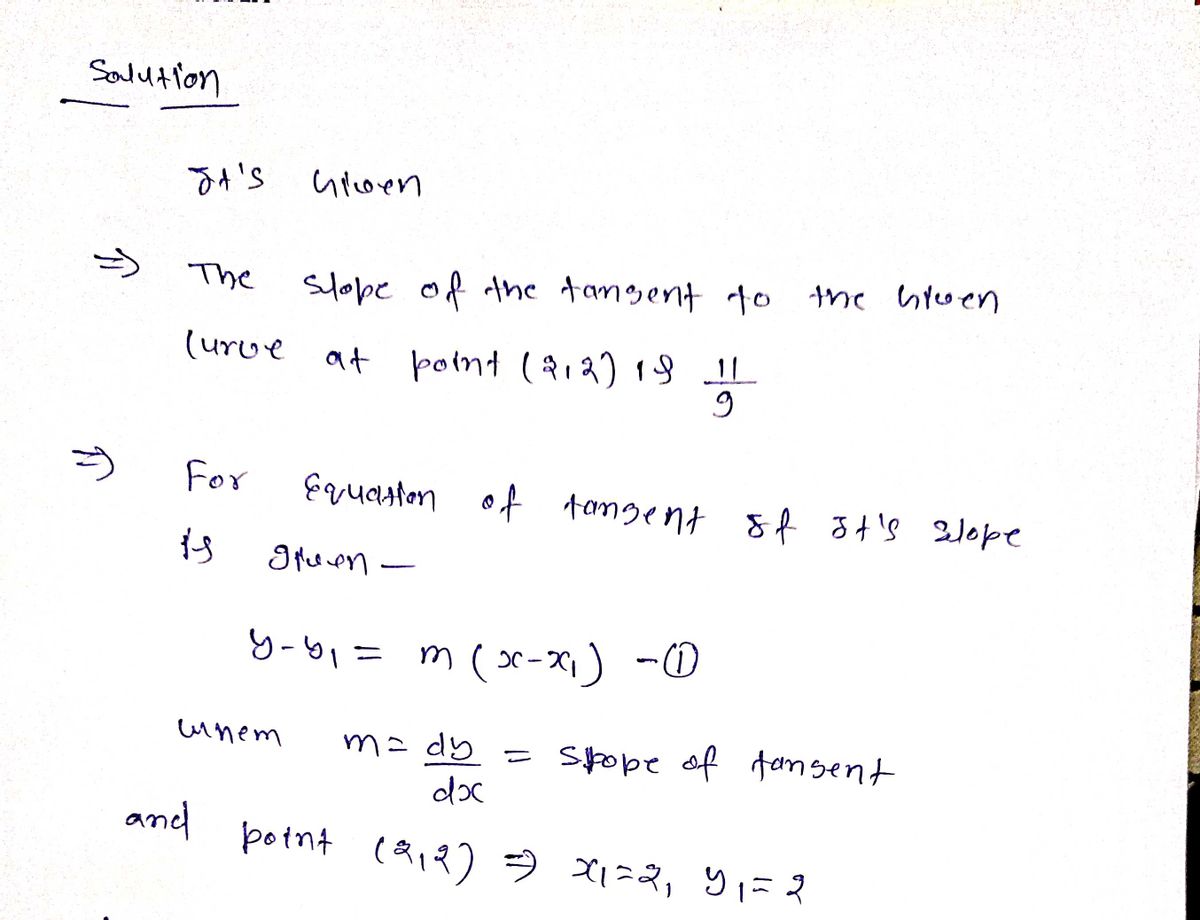 Solution
It's Given
⇒ The slope of the tangent to the Given
Curve at point (2,2) is 11/9
⇒ For Equation of tangent If It's slope
is given —
y-y₁ = m(x-x₁) -①
when m = dy/dx = slope of tangent
and point (2,2) ⇒ x₁=2, y₁=2